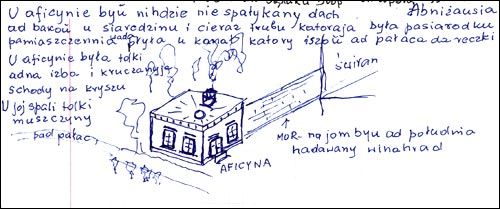 U aficynie byŭ nihdzie nie spatykany dach Abniżaŭsia
ad bakoŭ u siaredzinu i cieraz trubu katoraja była pasiarodku
pamiaszczennia dadż pryła u kanał katory iszoŭ ad pałaca da reczki
U aficynie była tolki
adna izba i kruczanyja
schody na kryszu
U joj spali tolki
muszczyny
pad pałac
świran
MUR- najom byu ad południa
hadawany winahrad
AFICYNA